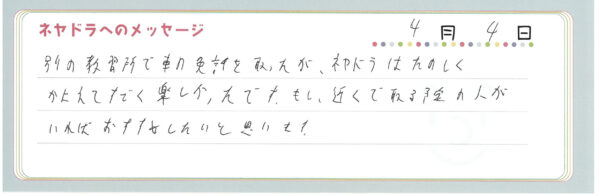 ネヤドラへのメッセージ
4月4日
別の教習所で車の免許を取ったが、ネヤドラはたのしく
かよえてすごく楽しかったです。もし、近くで取る予定の人が
いればおすすめしたいと思います。